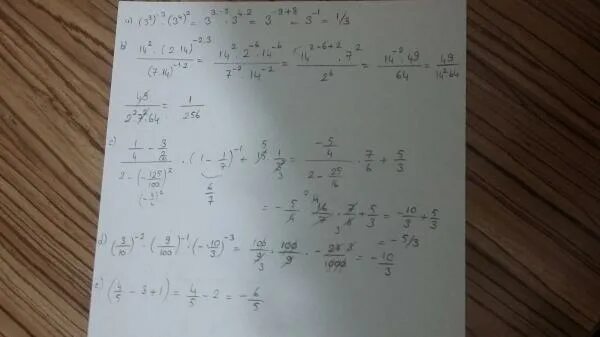 a) (3³)⁻³ · (3⁴)² = 3³·⁻³ · 3⁴·² = 3⁻⁹⁺⁸ = 3⁻¹ = 1/3
b) 14² · (2·14)⁻²·³ / (7·14)⁻¹·² = 14² · 2⁻⁶ · 14⁻⁶ / 7⁻² · 14⁻² = 14²⁻⁶⁺² · 7² / 2⁶ = 14⁻² · 49 / 64 = 49 / 14²·64
49 / 2²·7²·64 = 1 / 256
c) 1/4 - 3/2 / 2 - (-125/100)² · (1 - 1/7)⁻¹ + 15 · 1/3 = -5/4 / 2 - 25/16 · 7/6 + 5/3
(-5/4)² 6/7 = -5/4 · 16/7 · 7/6 + 5/3 = -10/3 + 5/3
= -5/3
d) (3/10)⁻² · (9/100)⁻¹ · (-10/3)⁻³ = 100/9 · 100/9 · -27/1000 = -10/3
e) (4/5 - 3 + 1) = 4/5 - 2 = -6/5